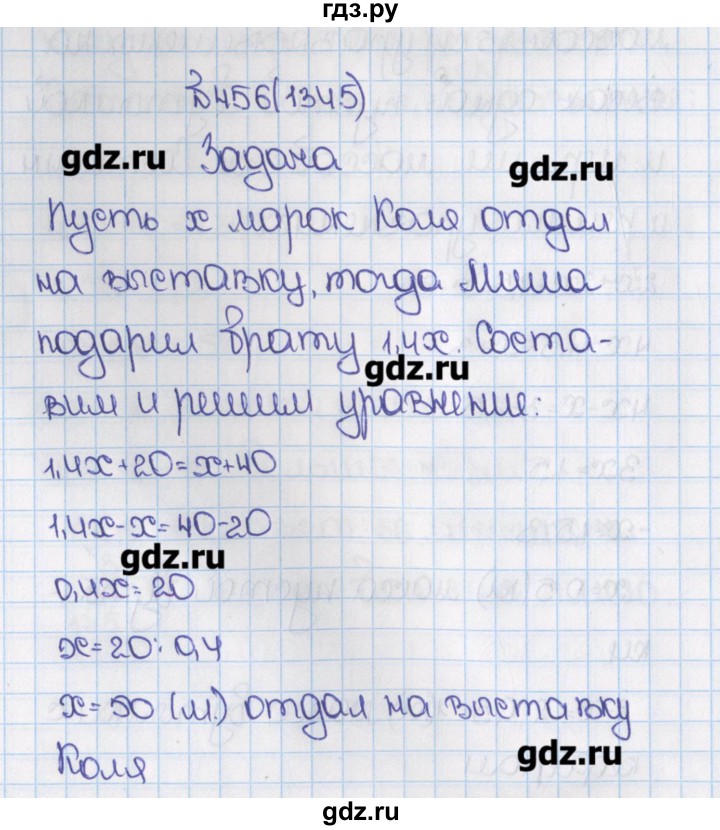 гдз.ру
№456(1345)
gdz.ru Задача gdz.ru
Пусть х марок Коля отдал
на выставку, тогда Миша
подарил брату 1,4х. Соста-
gdz.ru
вим и решим уравнение:
1,4х+20=х+40
1,4х-х=40-20
gdz.ru
0,4х=20
х=20:0,4
х=50 (м.) отдал на выставку
gdz.ru
Коля
gdz.ru